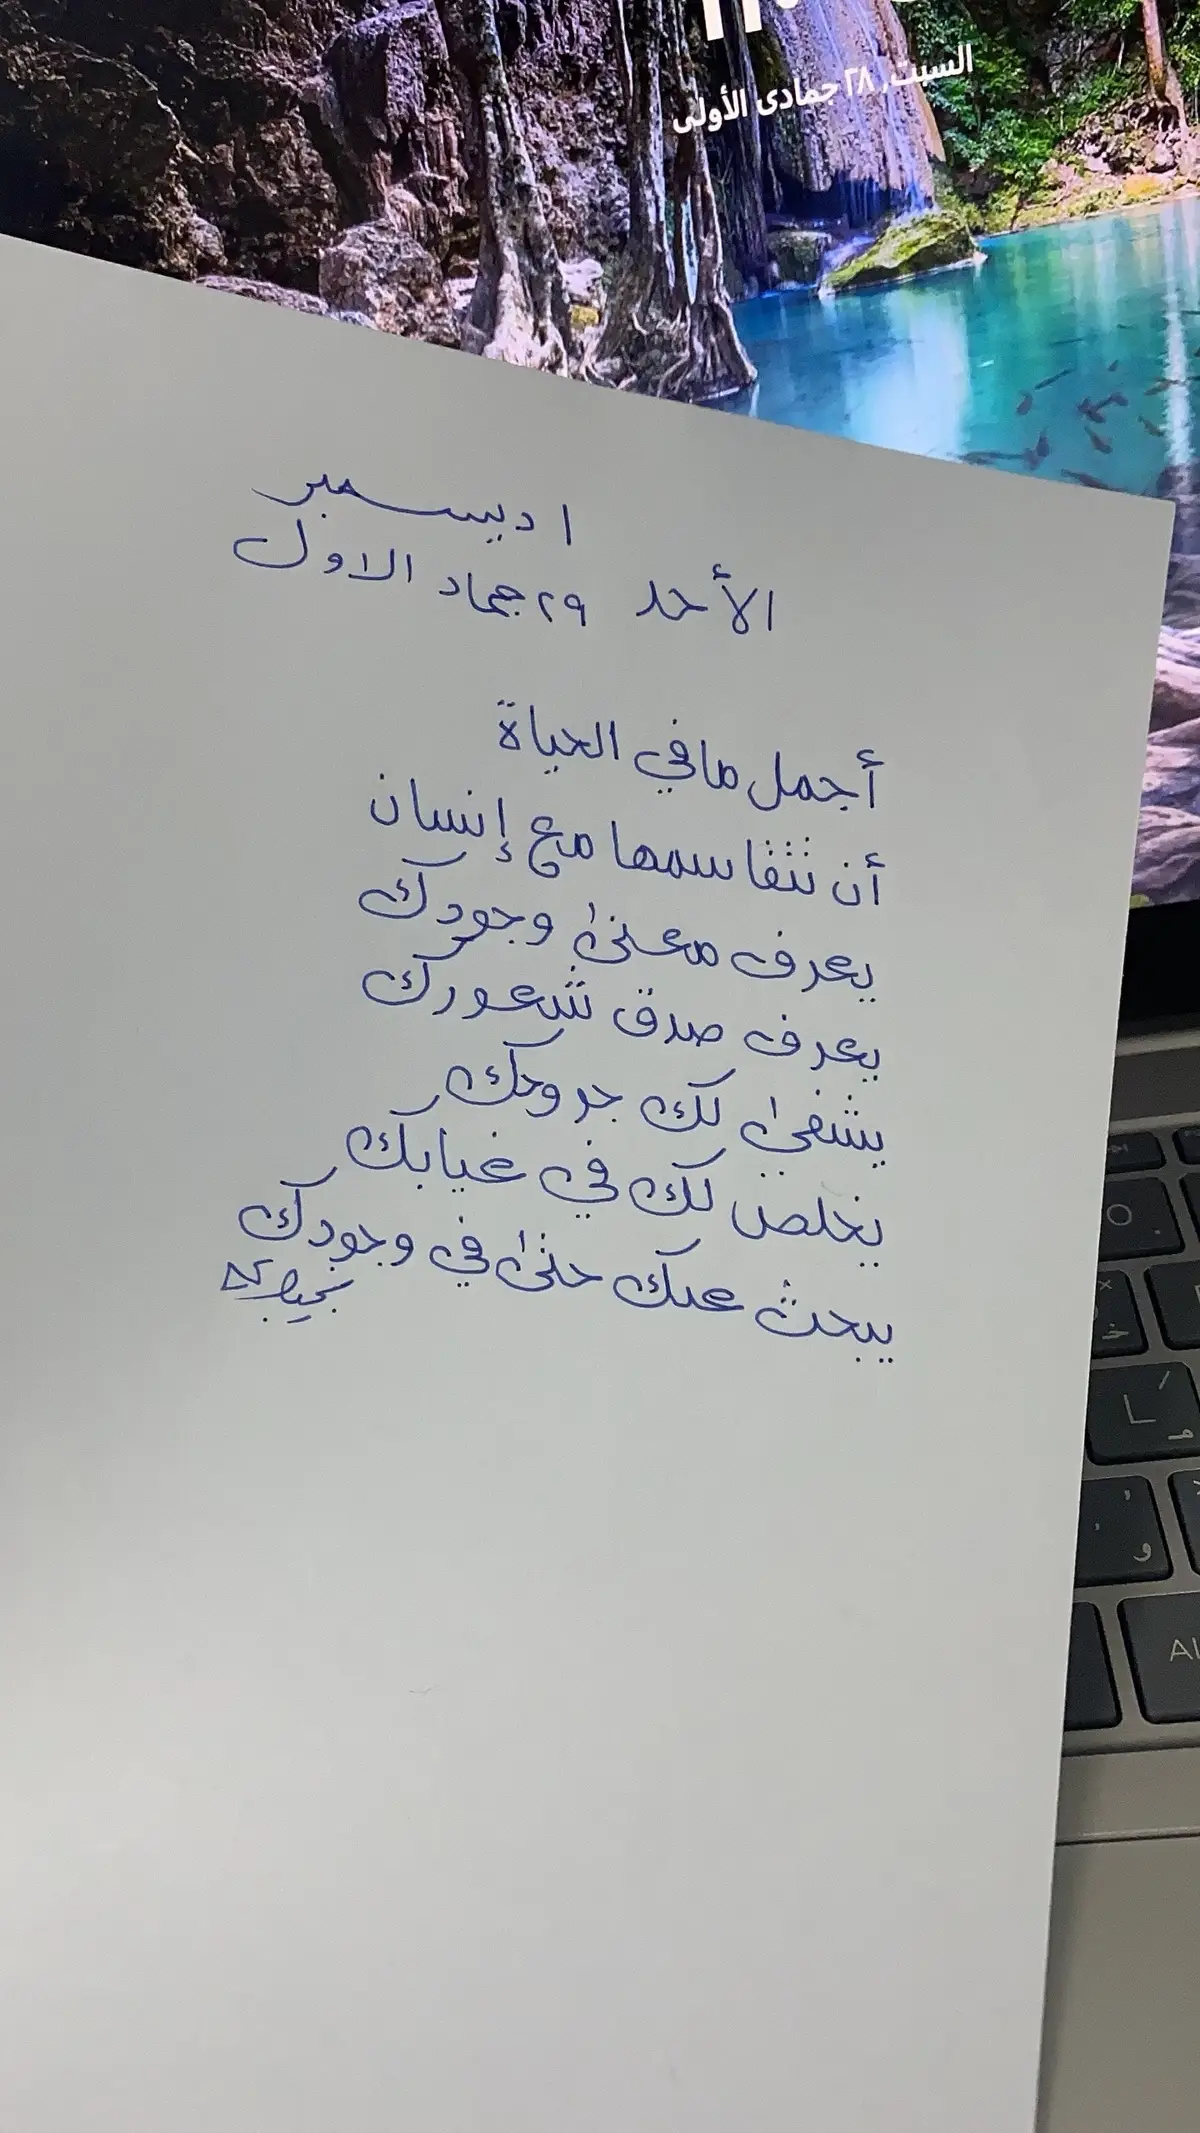 السبت، ٢٨ جمادى الأولى
١ ديسمبر
الأحد ٢٩ جماد الاول
أجمل مافي الحياة
أن نتقاسمها مع إنسان
يعرف معنىٰ وجودك
يعرف صدق شعورك
يشفيٰ لك جروحك
يخلص لك في غيابك
يبحث عنك حتىٰ في وجودك
Al